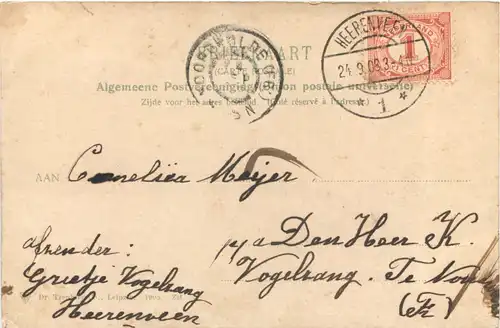 BRIEFKAART
(CARTE POSTALE)
Algemeene Postvereeniging (Union postale universelle)
Zijde voor het adres bestemd. (Côté réservé à l'adresse.)
HEERENVEEN
24.9.08.3-4
1
NEDERLAND
1
CENT
AAN Corneliea Meijer
afzender:
Grietje Vogelzang
Heerenveen
p/a Den Heer K.
Vogelzang. Te